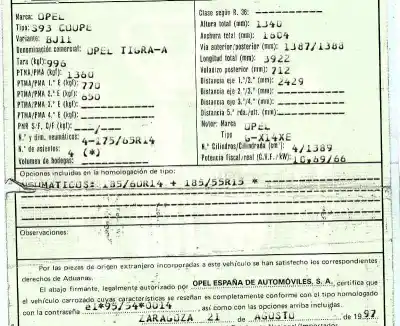 Marca: OPEL
Tipo: S93 COUPE
Variante: BJ11
Denominación comercial: OPEL TIGRA-A
Tara (kgf): 996
PTMA/PMA (kgf): 1360
PTMA/PMA 1.° E (kgf): 770
PTMA/PMA 2.° E (kgf): 650
PTMA/PMA 3.° E (kgf):
PTMA/PMA 4.° E (kgf):
PMR S/F, C/F (kgf): ---/---
N.° y dim. neumáticos: 4-175/65R14
N.° de asientos: 4 (*)
Volumen de bodegas:
Clase según R. 36:
Altura total (mm): 1340
Anchura total (mm): 1604
Vía anterior/posterior (mm): 1387/1388
Longitud total (mm): 3922
Voladizo posterior (mm): 712
Distancia eje 1.°/2.° (mm): 2429
Distancia eje 2.°/3.° (mm):
Distancia eje 3.°/4.° (mm):
Distancia 5.ª rda./ult. (mm):
Motor: Marca OPEL
Tipo G-X14XE
N.° Cilindros/Cilindrada (cm³): 4/1389
Potencia fiscal/real (C.V.F./kW): 10,69/66
Opciones incluidas en la homologación de tipo:
NEUMATICOS: 185/60R14 + 185/55R15 *
Observaciones:
Por las piezas de origen extranjero incorporadas a este vehículo se han satisfecho los correspondientes
derechos de Aduanas.
El abajo firmante, legalmente autorizado por OPEL ESPAÑA DE AUTOMÓVILES, S. A., certifica que
el vehículo carrozado cuyas características se reseñan es completamente conforme con el tipo homologado
con la contraseña e1*95/54*0014, así como con las opciones arriba incluidas.
ZARAGOZA 21 de AGOSTO de 1997